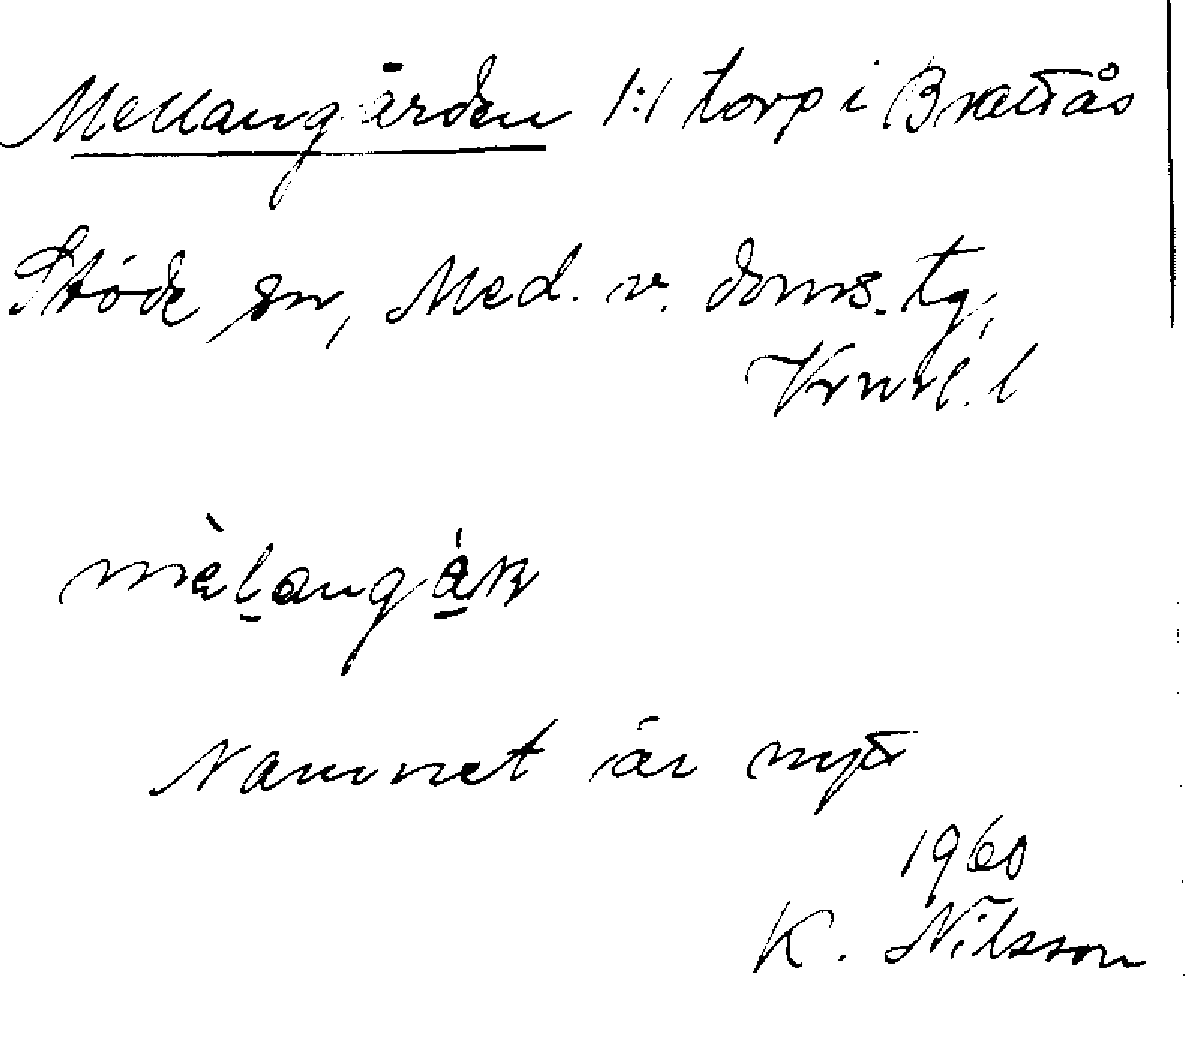 Mellangärden 1:1 torp i Brattås
Stöde sn, Med. v. doms. tg,
Vrnrl. l
mèlangák
Namnet är nytt
1960
K. Nilsson